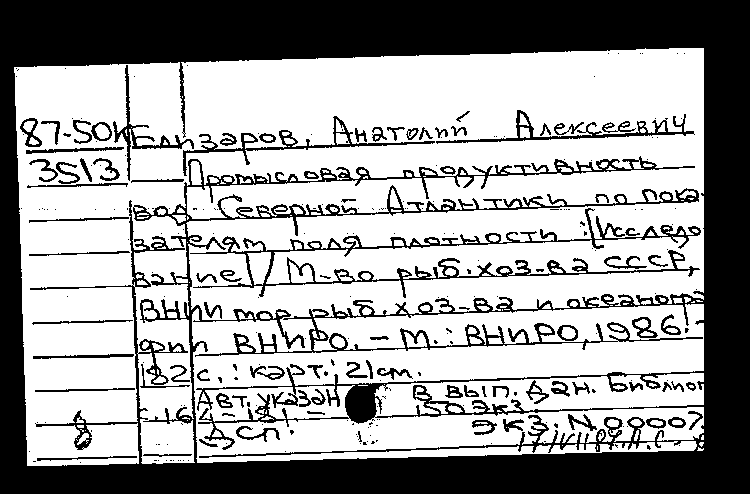 87-50К Елизаров, Анатолий Алексеевич
3513 Промысловая продуктивность
вод Северной Атлантики по пока-
зателям поля плотности : [Исследо-
вание] / М-во рыб. хоз-ва СССР,
ВНИИ мор. рыб. хоз-ва и океаногра-
фии ВНИРО. - М. : ВНИРО, 1986. -
182 с. : карт. ; 21 см.
Авт. указан в вып. дан. Библиог
с. 164-181. - 150 экз.
ДСП! экз. N 00007.
8 17/VII 87. А.С.